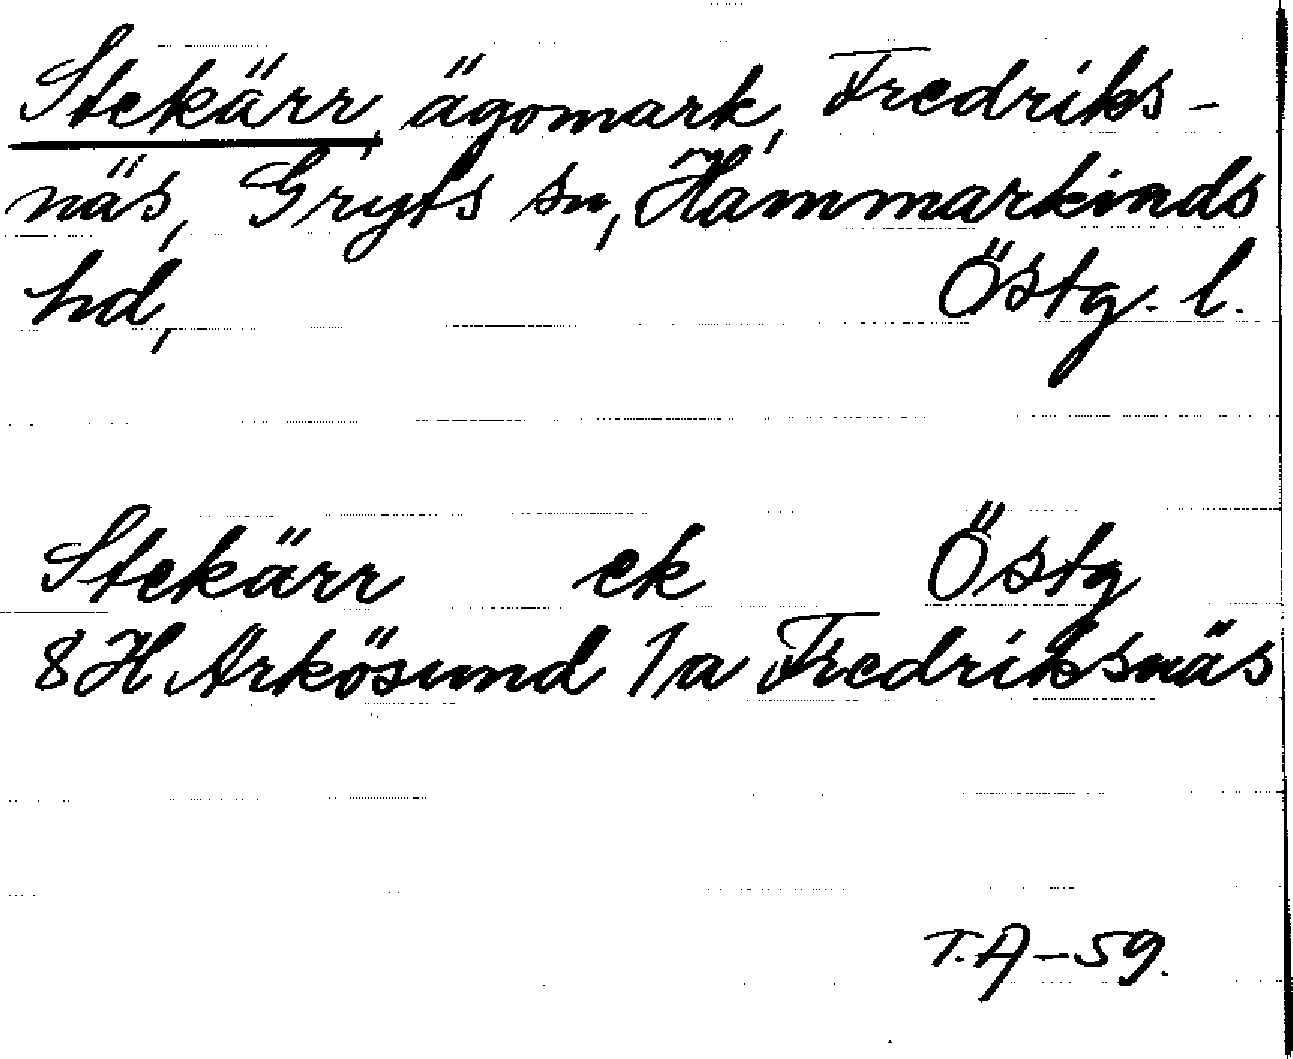 Stekärr, ägomark, Fredriks-
näs, Gryts sn, Hammarkinds
hd, Östg. l.
Stekärr ek Östg
8H Arkösund 1a Fredriksnäs
T.A-59.